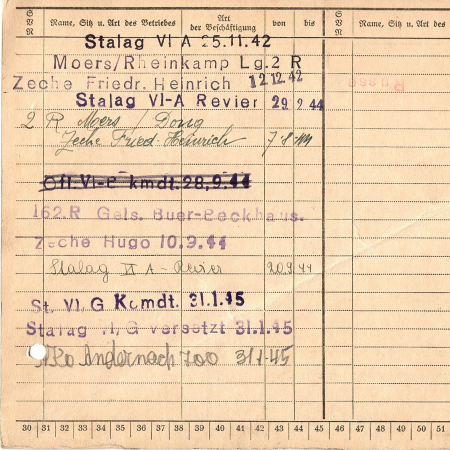 SVN Name, Sitz u. Art des Betriebes Art der Beschäftigung von bis SVN Name, Sitz u. Art des
Stalag VI A 25.11.42
Moers/Rheinkamp Lg. 2 R
Zeche Friedr. Heinrich 12.12.42
Stalag VI-A Revier 29.2.44
2 R Moers / Dong
Zeche Fried. Heinrich 7.8.44
Off. VI-E kmdt. 28.9.44
162.R Gels. Buer-Beckhaus.
Zeche Hugo 10.9.44
Stalag VI A - Revier 20.9.44
St. VI, G Komdt. 31.1.45
Stalag VI, G versetzt 31.1.45
Andernach 700 31.1.45
30 31 32 33 34 35 36 37 38 39 40 41 42 43 44 45 46 47 48 49 50 51